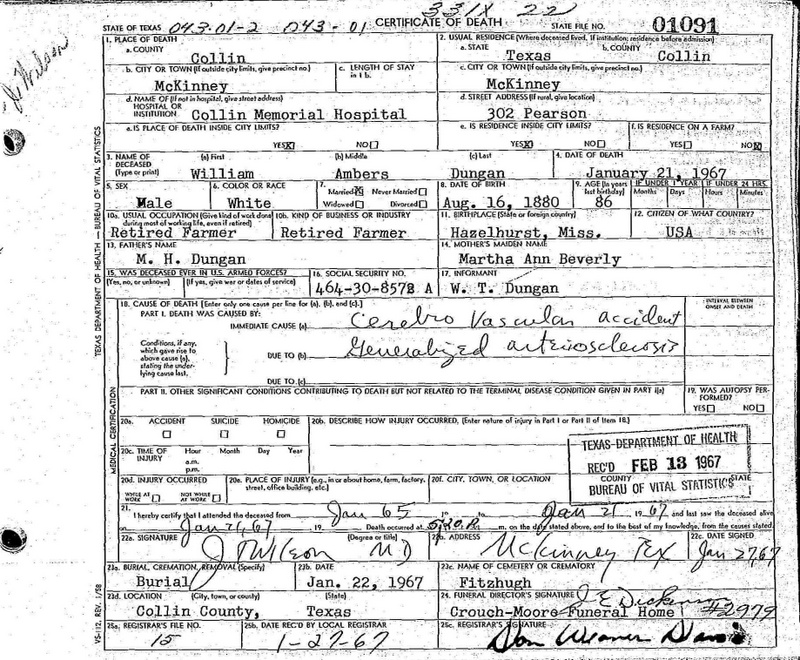 331X 22
STATE OF TEXAS 043-01-2 043-01 CERTIFICATE OF DEATH STATE FILE NO. 01091
1. PLACE OF DEATH
a. COUNTY
Collin
2. USUAL RESIDENCE (Where deceased lived. If institution: residence before admission)
a. STATE b. COUNTY
Texas Collin
b. CITY OR TOWN (If outside city limits, give precinct no.) c. LENGTH OF STAY in 1 b.
McKinney
c. CITY OR TOWN (If outside city limits, give precinct no.)
McKinney
d. NAME OF (If not in hospital, give street address) HOSPITAL OR INSTITUTION
Collin Memorial Hospital
d. STREET ADDRESS (If rural, give location)
302 Pearson
e. IS PLACE OF DEATH INSIDE CITY LIMITS?
YES X NO
e. IS RESIDENCE INSIDE CITY LIMITS?
YES X NO
f. IS RESIDENCE ON A FARM?
YES NO X
3. NAME OF DECEASED (Type or print) (a) First (b) Middle (c) Last
William Ambers Dungan
4. DATE OF DEATH
January 21, 1967
5. SEX
Male
6. COLOR OR RACE
White
7. Married X Never Married
Widowed Divorced
8. DATE OF BIRTH
Aug. 16, 1880
9. AGE (In years last birthday)
86
IF UNDER 1 YEAR IF UNDER 24 HRS.
Months Days Hours Minutes
10a. USUAL OCCUPATION (Give kind of work done during most of working life, even if retired)
Retired Farmer
10b. KIND OF BUSINESS OR INDUSTRY
Retired Farmer
11. BIRTHPLACE (State or foreign country)
Hazelhurst, Miss.
12. CITIZEN OF WHAT COUNTRY?
USA
13. FATHER'S NAME
M. H. Dungan
14. MOTHER'S MAIDEN NAME
Martha Ann Beverly
15. WAS DECEASED EVER IN U.S. ARMED FORCES?
(Yes, no, or unknown) (If yes, give war or dates of service)
16. SOCIAL SECURITY NO.
464-30-8572 A
17. INFORMANT
W. T. Dungan
18. CAUSE OF DEATH [Enter only one cause per line for (a), (b), and (c).]
INTERVAL BETWEEN ONSET AND DEATH
PART I. DEATH WAS CAUSED BY:
IMMEDIATE CAUSE (a) Cerebro Vascular accident
Conditions, if any, which gave rise to above cause (a), stating the underlying cause last.
DUE TO (b) Generalized arteriosclerosis
DUE TO (c)
PART II. OTHER SIGNIFICANT CONDITIONS CONTRIBUTING TO DEATH BUT NOT RELATED TO THE TERMINAL DISEASE CONDITION GIVEN IN PART I(a)
19. WAS AUTOPSY PERFORMED?
YES NO
20a. ACCIDENT SUICIDE HOMICIDE
20b. DESCRIBE HOW INJURY OCCURRED. (Enter nature of injury in Part I or Part II of Item 18.)
20c. TIME OF INJURY Hour Month Day Year
a.m.
p.m.
20d. INJURY OCCURRED
WHILE AT WORK NOT WHILE AT WORK
20e. PLACE OF INJURY (e.g., in or about home, farm, factory, street, office building, etc.)
20f. CITY, TOWN, OR LOCATION COUNTY STATE
TEXAS DEPARTMENT OF HEALTH
REC'D FEB 13 1967
BUREAU OF VITAL STATISTICS
21. I hereby certify that I attended the deceased from Jan 65 to Jan 21 1967 and last saw the deceased alive
on Jan 21, 67 19 Death occurred at 5:30 P. m. on the date stated above, and to the best of my knowledge, from the causes stated.
22a. SIGNATURE (Degree or title)
J T Wilson MD
22b. ADDRESS
McKinney Tex
22c. DATE SIGNED
Jan 27, 67
23a. BURIAL, CREMATION, REMOVAL (Specify)
Burial
23b. DATE
Jan. 22, 1967
23c. NAME OF CEMETERY OR CREMATORY
Fitzhugh
23d. LOCATION (City, town, or county) (State)
Collin County, Texas
24. FUNERAL DIRECTOR'S SIGNATURE
Crouch-Moore Funeral Home #2979
25a. REGISTRAR'S FILE NO.
15
25b. DATE REC'D BY LOCAL REGISTRAR
1-27-67
25c. REGISTRAR'S SIGNATURE
Wilson
TEXAS DEPARTMENT OF HEALTH — BUREAU OF VITAL STATISTICS
MEDICAL CERTIFICATION
VS-112, REV. 1/58